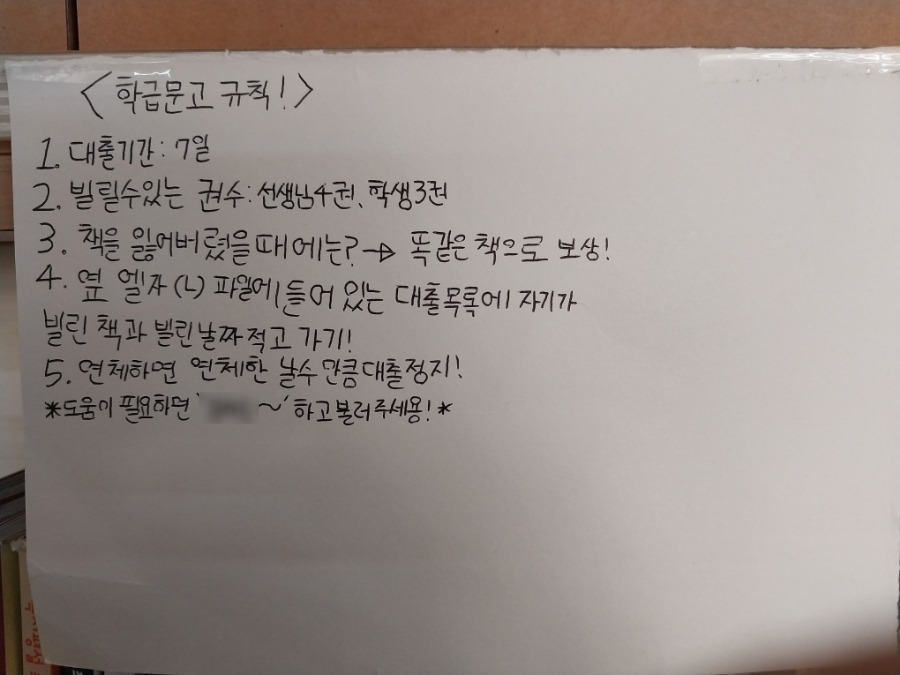 <학급문고 규칙!>
1. 대출기간: 7일
2. 빌릴수있는 권수: 선생님4권, 학생3권
3. 책을 잃어버렸을때에는? → 똑같은 책으로 보상!
4. 옆 엘자 (L) 파일에 들어 있는 대출목록에 자기가
빌린 책과 빌린날짜적고 가기!
5. 연체하면 연체한 날수만큼대출정지!
*도움이 필요하면 ' ~' 하고불러주세용!*